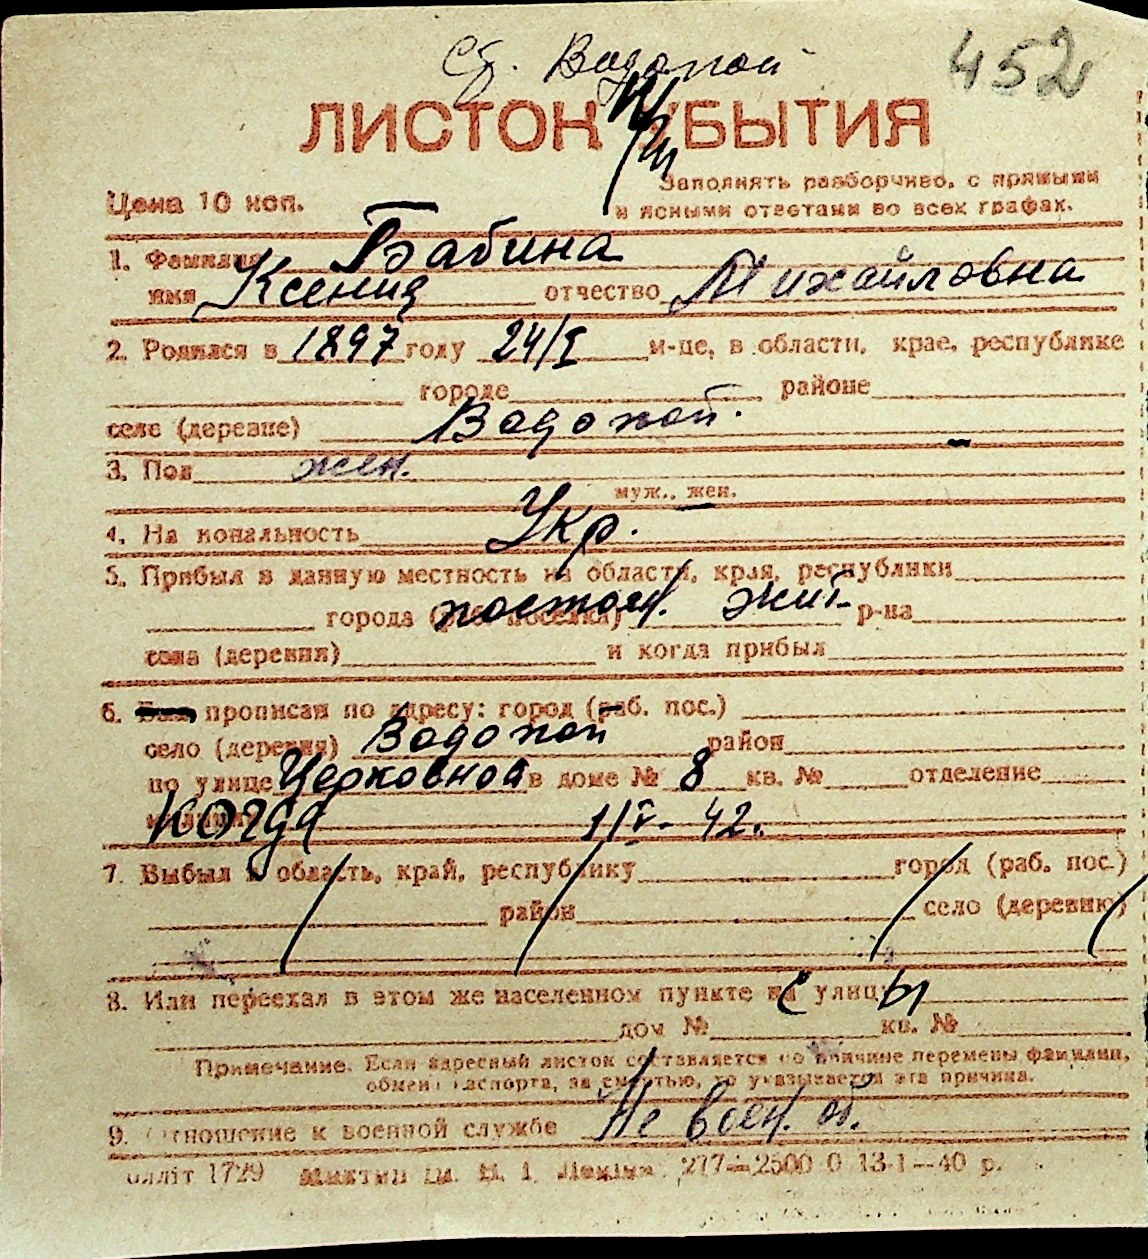 Ст. Водопой
452
ЛИСТОК УБЫТИЯ
Цена 10 коп.
Заполнять разборчиво, с прямыми
и ясными ответами во всех графах.
1. Фамилия Бабина
имя Ксения отчество Михайловна
2. Родился в 1897 году 24/I м-це, в области, крае, республике
городе районе
селе (деревне) Водопой.
3. Пол жен.
муж., жен.
4. На кональность Укр.
5. Прибыл в данную местность из области, края, республики
постоян. жит.
города (раб. поселка) р-на
села (деревня) и когда прибыл
6. прописан по адресу: город (раб. пос.)
село (деревня) Водопой район
по улице Церковной в доме № 8 кв. № отделение
милиции когда 1/V-42.
7. Выбыл в область, край, республику город (раб. пос.)
район село (деревню)
8. Или переехал в этом же населенном пункте с улицы
дом № кв. №
Примечание. Если адресный листок составляется по причине перемены фамилии,
обмена паспорта, за смертью, то указывается эта причина.
9. Отношение к военной службе Не воен. об.
1729 277—2500 0 13-1—40 р.